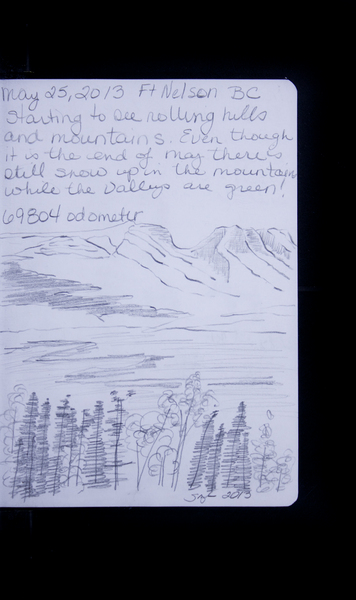 May 25, 2013 Ft Nelson BC
Starting to see rolling hills
and mountains. Even though
it is the end of may there is
still snow up in the mountains
while the valleys are green!
69804 odometer
2013